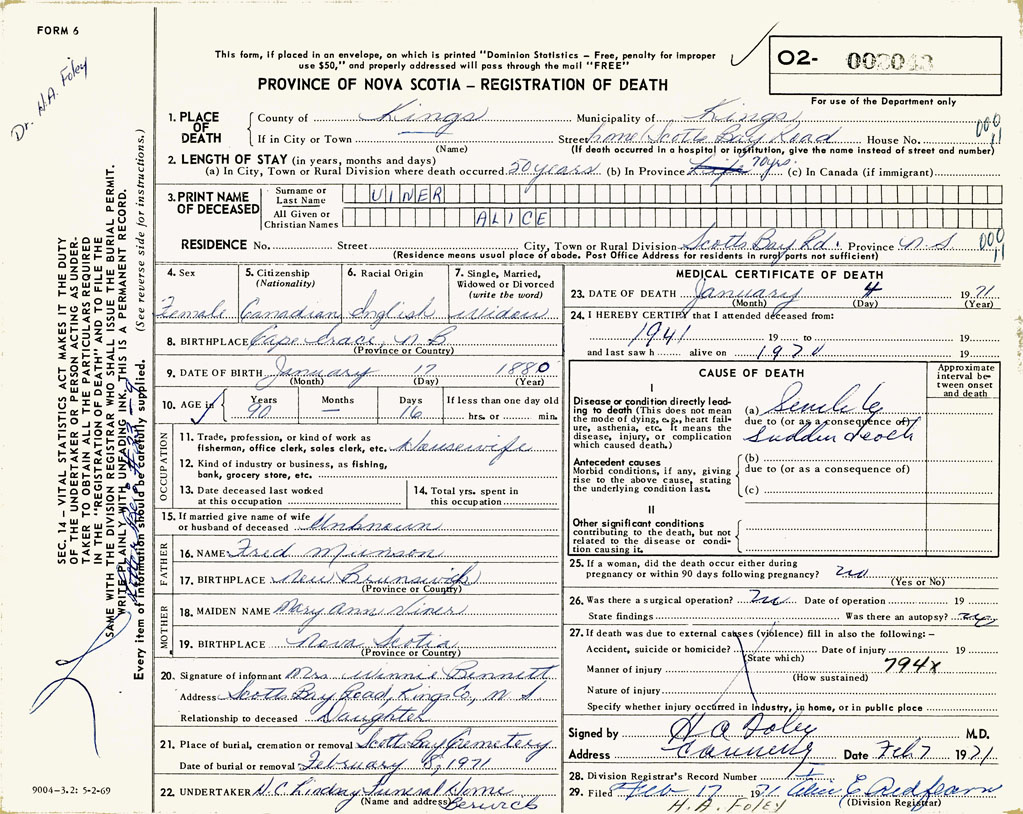 FORM 6
Dr. H.A. Foley
This form, if placed in an envelope, on which is printed "Dominion Statistics – Free, penalty for improper
use $50," and properly addressed will pass through the mail "FREE"
PROVINCE OF NOVA SCOTIA – REGISTRATION OF DEATH
02-
For use of the Department only
1. PLACE OF DEATH
County of Kings Municipality of Kings
If in City or Town Street home Scotts Bay Road House No. 000 11
(Name) (If death occurred in a hospital or institution, give the name instead of street and number)
2. LENGTH OF STAY (in years, months and days)
(a) In City, Town or Rural Division where death occurred 50 years (b) In Province Life 70 yrs. (c) In Canada (if immigrant)
3. PRINT NAME OF DECEASED
Surname or Last Name VINER
All Given or Christian Names ALICE
RESIDENCE No. Street City, Town or Rural Division Scotts Bay Rd. Province N.S 000 11
(Residence means usual place of abode. Post Office Address for residents in rural parts not sufficient)
4. Sex 5. Citizenship (Nationality) 6. Racial Origin 7. Single, Married, Widowed or Divorced (write the word)
Female Canadian English Widow
8. BIRTHPLACE Cape , N.B
(Province or Country)
9. DATE OF BIRTH January 17 1880
(Month) (Day) (Year)
10. AGE in Years Months Days If less than one day old
90 – 16 hrs. or min.
OCCUPATION
11. Trade, profession, or kind of work as
fisherman, office clerk, sales clerk, etc. Housewife
12. Kind of industry or business, as fishing,
bank, grocery store, etc.
13. Date deceased last worked
at this occupation
14. Total yrs. spent in
this occupation
15. If married give name of wife
or husband of deceased Unknown
FATHER
16. NAME Fred Munson
17. BIRTHPLACE New Brunswick
(Province or Country)
MOTHER
18. MAIDEN NAME Mary Ann Viner
19. BIRTHPLACE Nova Scotia
(Province or Country)
20. Signature of informant Mrs Winnie Bennett
Address Scotts Bay Road, Kings Co, N.S
Relationship to deceased Daughter
21. Place of burial, cremation or removal Scotts Bay Cemetery
Date of burial or removal February 8, 1971
22. UNDERTAKER H.C. Lindsay Funeral Home
(Name and address) Berwick
MEDICAL CERTIFICATE OF DEATH
23. DATE OF DEATH January 4 1971
(Month) (Day) (Year)
24. I HEREBY CERTIFY that I attended deceased from:
1941 19 to 19
and last saw h alive on 1970 19
CAUSE OF DEATH
Approximate interval between onset and death
I
Disease or condition directly leading to death (This does not mean
the mode of dying, e.g., heart failure, asthenia, etc. It means the
disease, injury, or complication
which caused death.)
(a) Senility
due to (or as a consequence of)
Sudden death
Antecedent causes
Morbid conditions, if any, giving
rise to the above cause, stating
the underlying condition last.
(b)
due to (or as a consequence of)
(c)
II
Other significant conditions
contributing to the death, but not
related to the disease or condition causing it.
25. If a woman, did the death occur either during
pregnancy or within 90 days following pregnancy? no
(Yes or No)
26. Was there a surgical operation? no Date of operation 19
State findings Was there an autopsy? no
27. If death was due to external causes (violence) fill in also the following:–
Accident, suicide or homicide? Date of injury 19
(State which)
Manner of injury 794x
(How sustained)
Nature of injury
Specify whether injury occurred in industry, in home, or in public place
Signed by H A Foley M.D.
Address Canning Date Feb 7 1971
28. Division Registrar's Record Number
29. Filed Feb 17 1971 E Redfearn
H.A. FOLEY (Division Registrar)
SEC. 14 – VITAL STATISTICS ACT MAKES IT THE DUTY
OF THE UNDERTAKER OR PERSON ACTING AS UNDER-
TAKER TO OBTAIN ALL THE PARTICULARS REQUIRED
IN THE "REGISTRATION OF DEATH" AND TO FILE THE
SAME WITH THE DIVISION REGISTRAR WHO SHALL ISSUE THE BURIAL PERMIT.
WRITE PLAINLY WITH UNFADING INK. THIS IS A PERMANENT RECORD.
Every item of information should be carefully supplied. (See reverse side for instructions.)
9004–3.2: 5-2-69